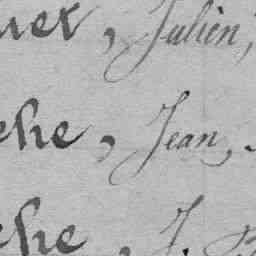 uer, Julien,
ehe, Jean,
ehe, J.